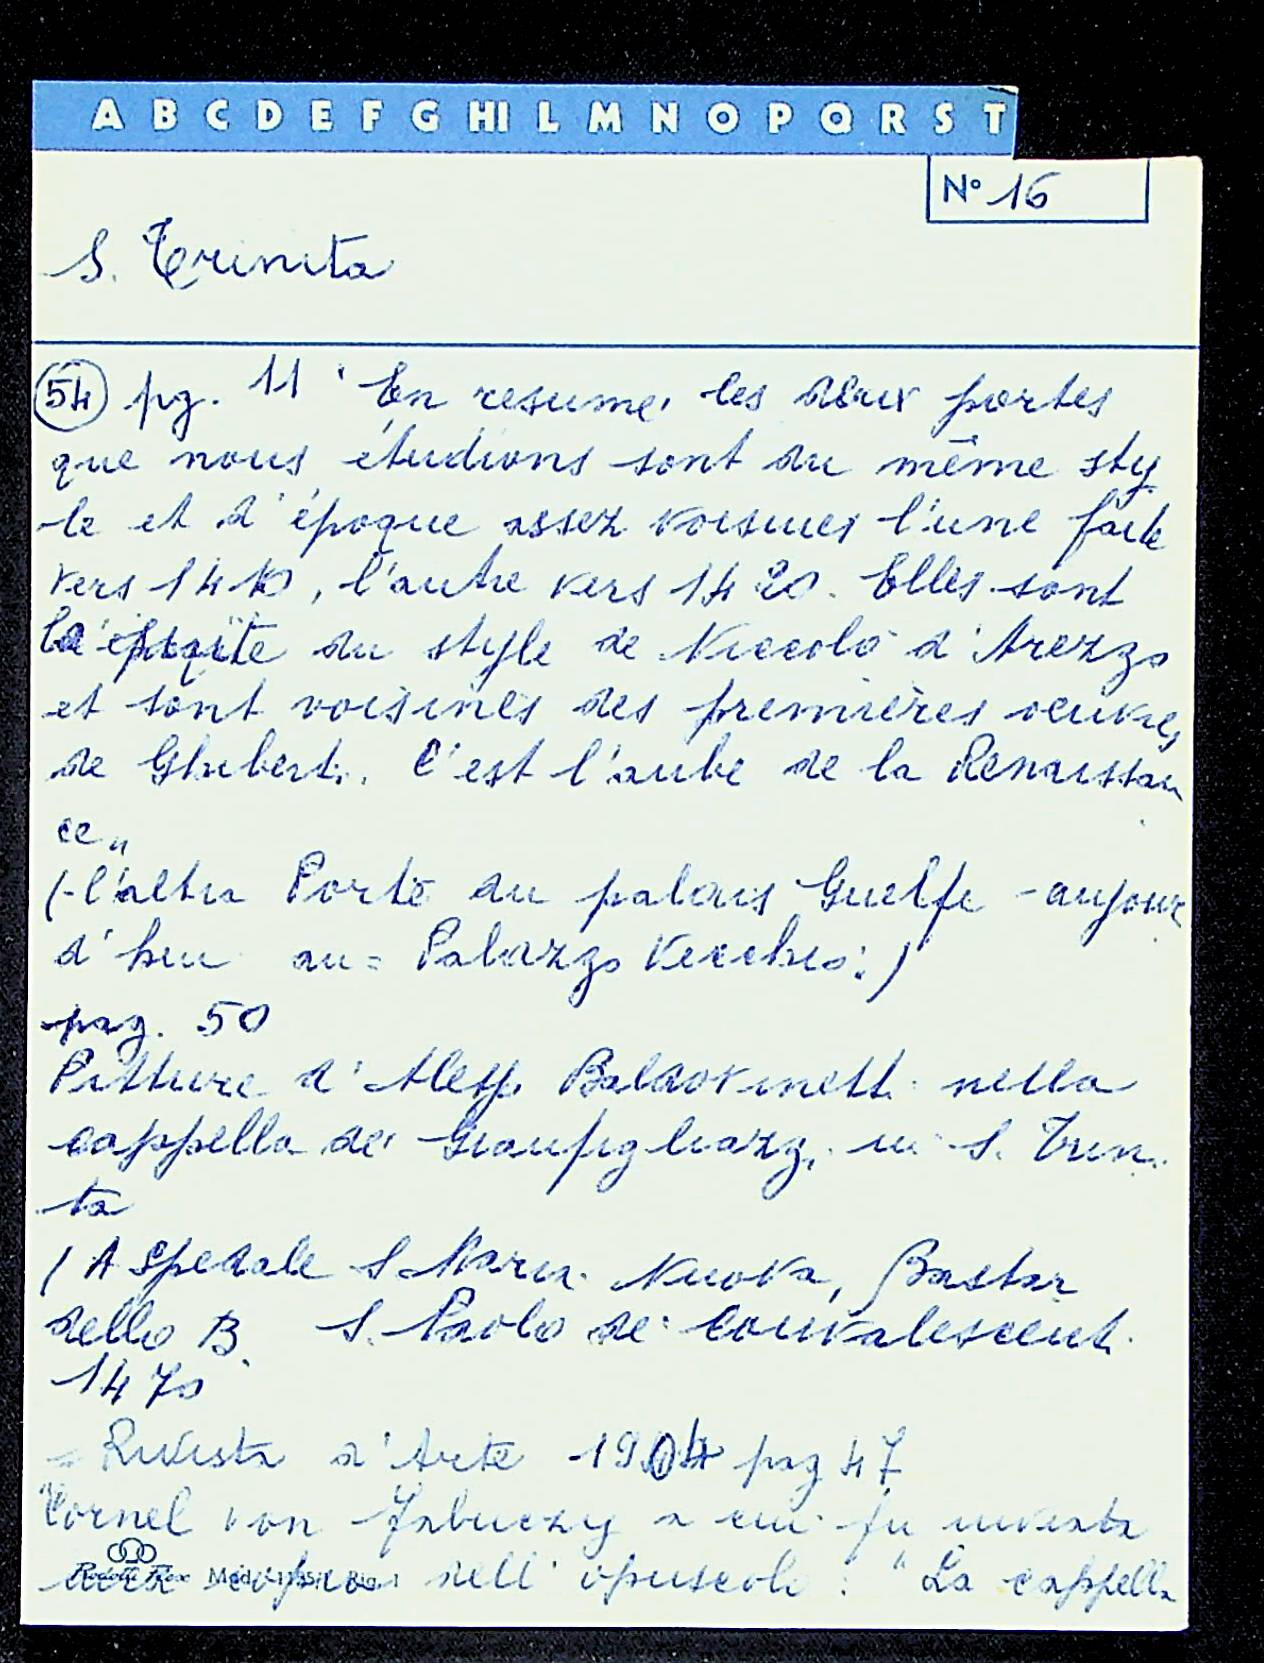 A B C D E F G HI L M N O P Q R S T
N° 16
S. Trinita
54 pg. 11 "En resumé, les deux portes
que nous étudions sont du même sty
le et d'époque assez voisines l'une faite
vers 1410, l'autre vers 1420. Elles sont
du style de Niccolò d'Arezzo
et sont voisines des premières oeuvres
de Ghiberti. C'est l'aube de la Renaissan
ce"
(-l'altra Porte du palais Guelfe - aujour
d'hui au = Palazzo Vecchio:)
pag. 50
Pitture d'Aless. Baldovinetti nella
cappella dei Gianfigliazzi in S. Trini
ta
(A Spedale S Maria Nuova, Bastar
dello B. S. Paolo dei Convalescenti
1470
= Rivista d'Arte 1904 pag 47
Cornel von Fabriczy a cui fu inviata
nell' opuscolo: "La cappella